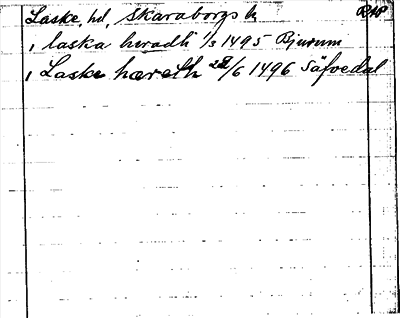 Laske, hd, Skaraborgs l. RAP
i laska heradh 1/3 1495 Bjurum
i Laske hæreth 22/6 1496 Säfvedal